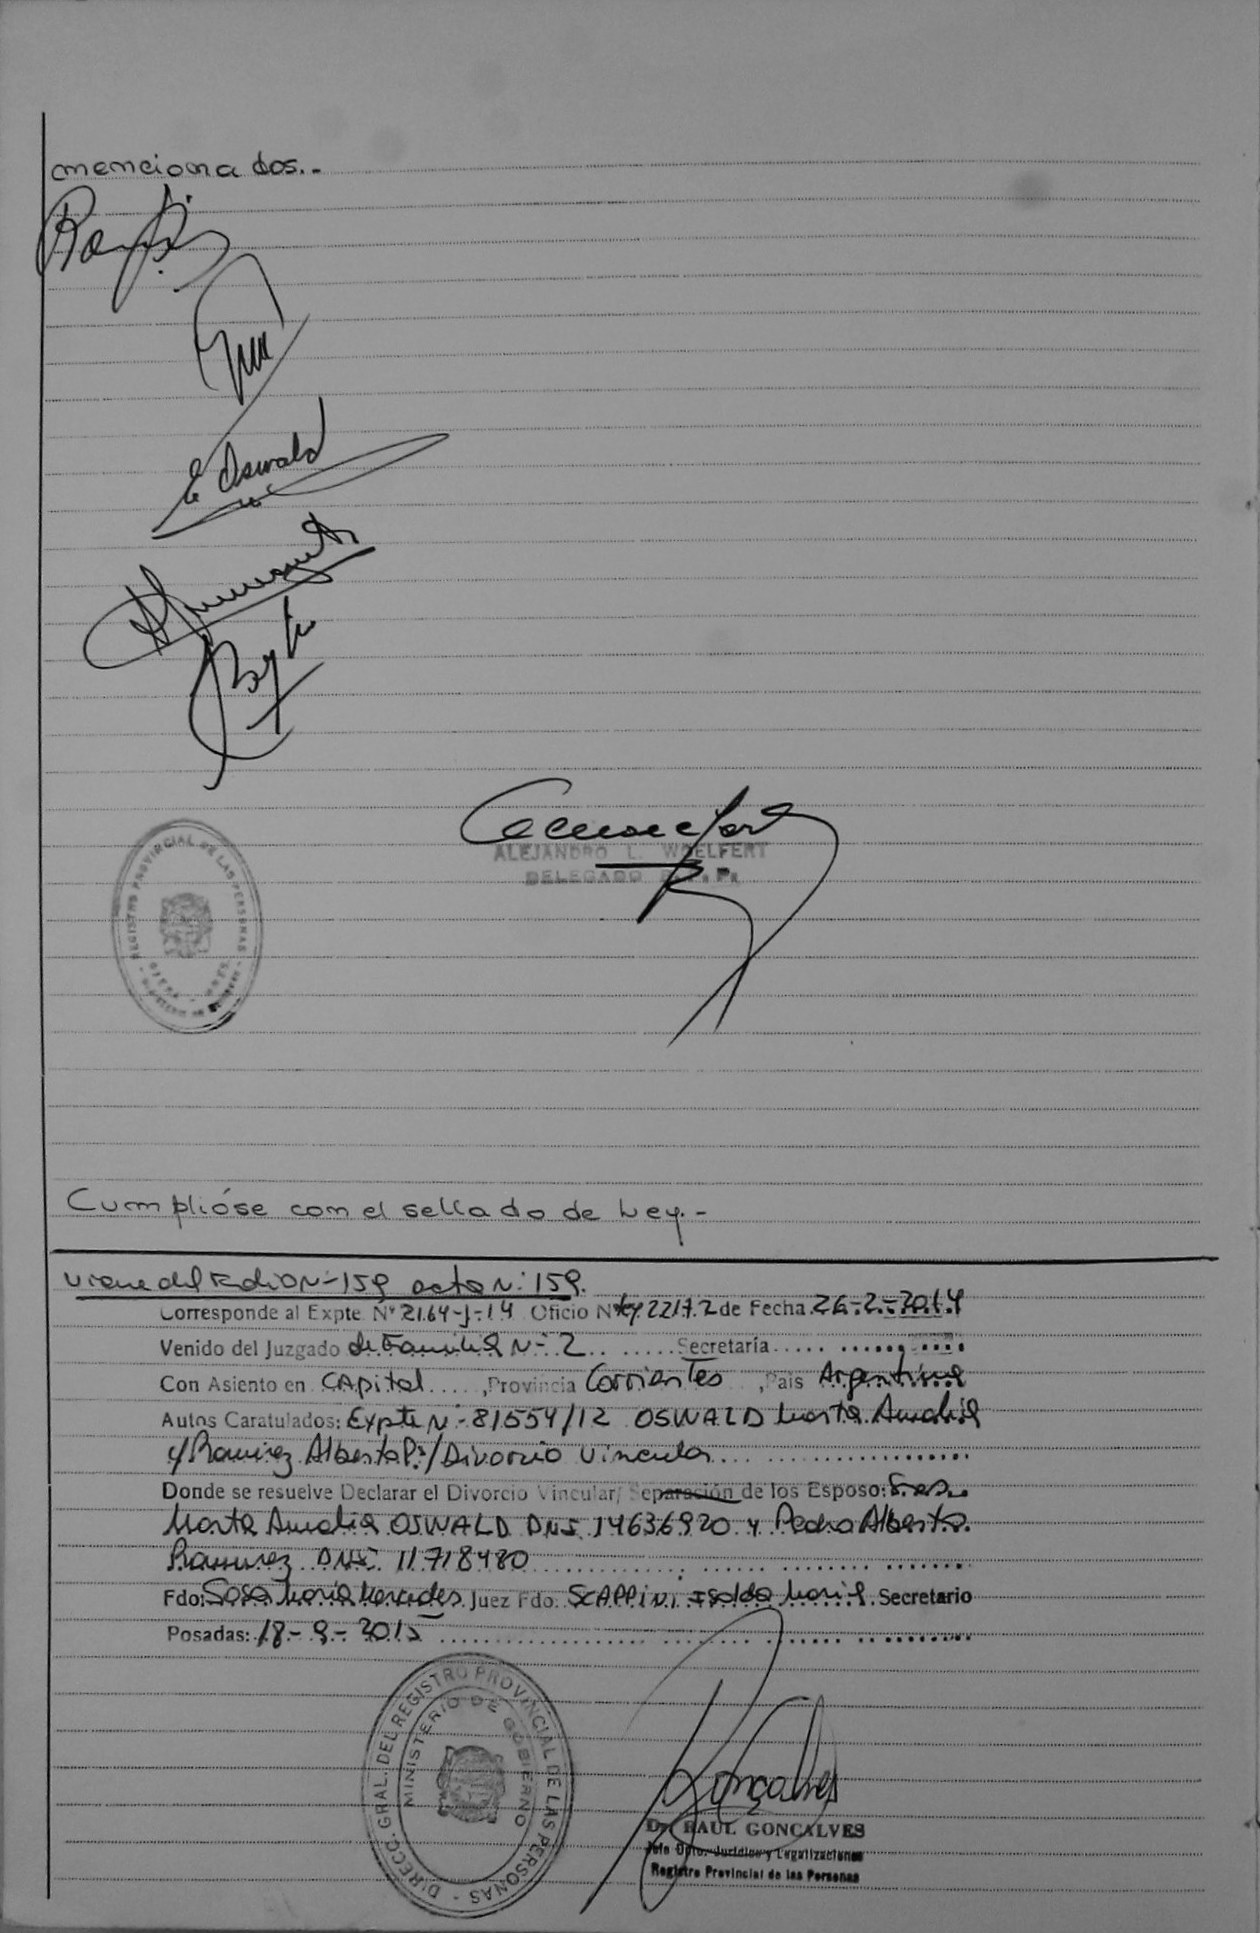 mencionados.-
Oswald
ALEJANDRO L. WOELFERT
DELEGADO R. P. P.
REGISTRO PROVINCIAL DE LAS PERSONAS
Cumplióse con el sellado de Ley.-
Viene del Folio Nº 159 acta Nº 159.
Corresponde al Expte. Nº 2164-J-14 Oficio Nº 2217.2 de Fecha 26-2-2014
Venido del Juzgado de Familia Nº 2 Secretaría
Con Asiento en CApital, Provincia Corrientes, País Argentina
Autos Caratulados: Expte Nº 81554/12 OSWALD Marta Amalia
c/ Ramirez Alberto P. s/ Divorcio Vincular
Donde se resuelve Declarar el Divorcio Vincular/ Separación de los Esposo: Sres.
Marta Amalia OSWALD DNI 14636920 y Pedro Alberto
Ramirez DNI 11718480
Fdo: Sosa María Mercedes Juez Fdo: SCAPPINI Isolda María Secretario
Posadas: 18-9-2015
DIRECC. GRAL. DEL REGISTRO PROVINCIAL DE LAS PERSONAS -
MINISTERIO DE GOBIERNO
Gonçalves
Dr. RAUL GONCALVES
Jefe Dpto. Jurídico y Legalizaciones
Registro Provincial de las Personas